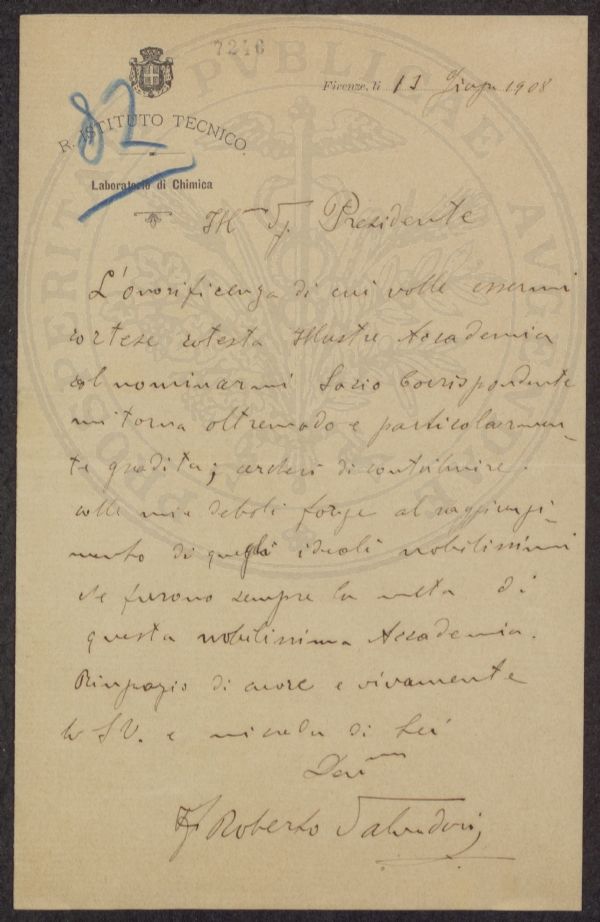 7246
PVBLICAE
PROSPERITATI AVGENDAE
82
R. ISTITUTO TECNICO
Laboratorio di Chimica
Firenze, li 11 Giugn 1908
Ill^mo Sig. Presidente
L'onorificenza di cui volle essermi
cortese cotesta Illustre Accademia
col nominarmi Socio Corrispondente
mi torna oltremodo e particolarmen-
te gradita; cercherò di contribuire
colle mie deboli forze al raggiungi-
mento di quegli ideali nobilissimi
che furono sempre la meta di
questa nobilissima Accademia.
Ringrazio di cuore e vivamente
la S V. e mi creda di Lei
Dev^mo
Roberto Salvadori